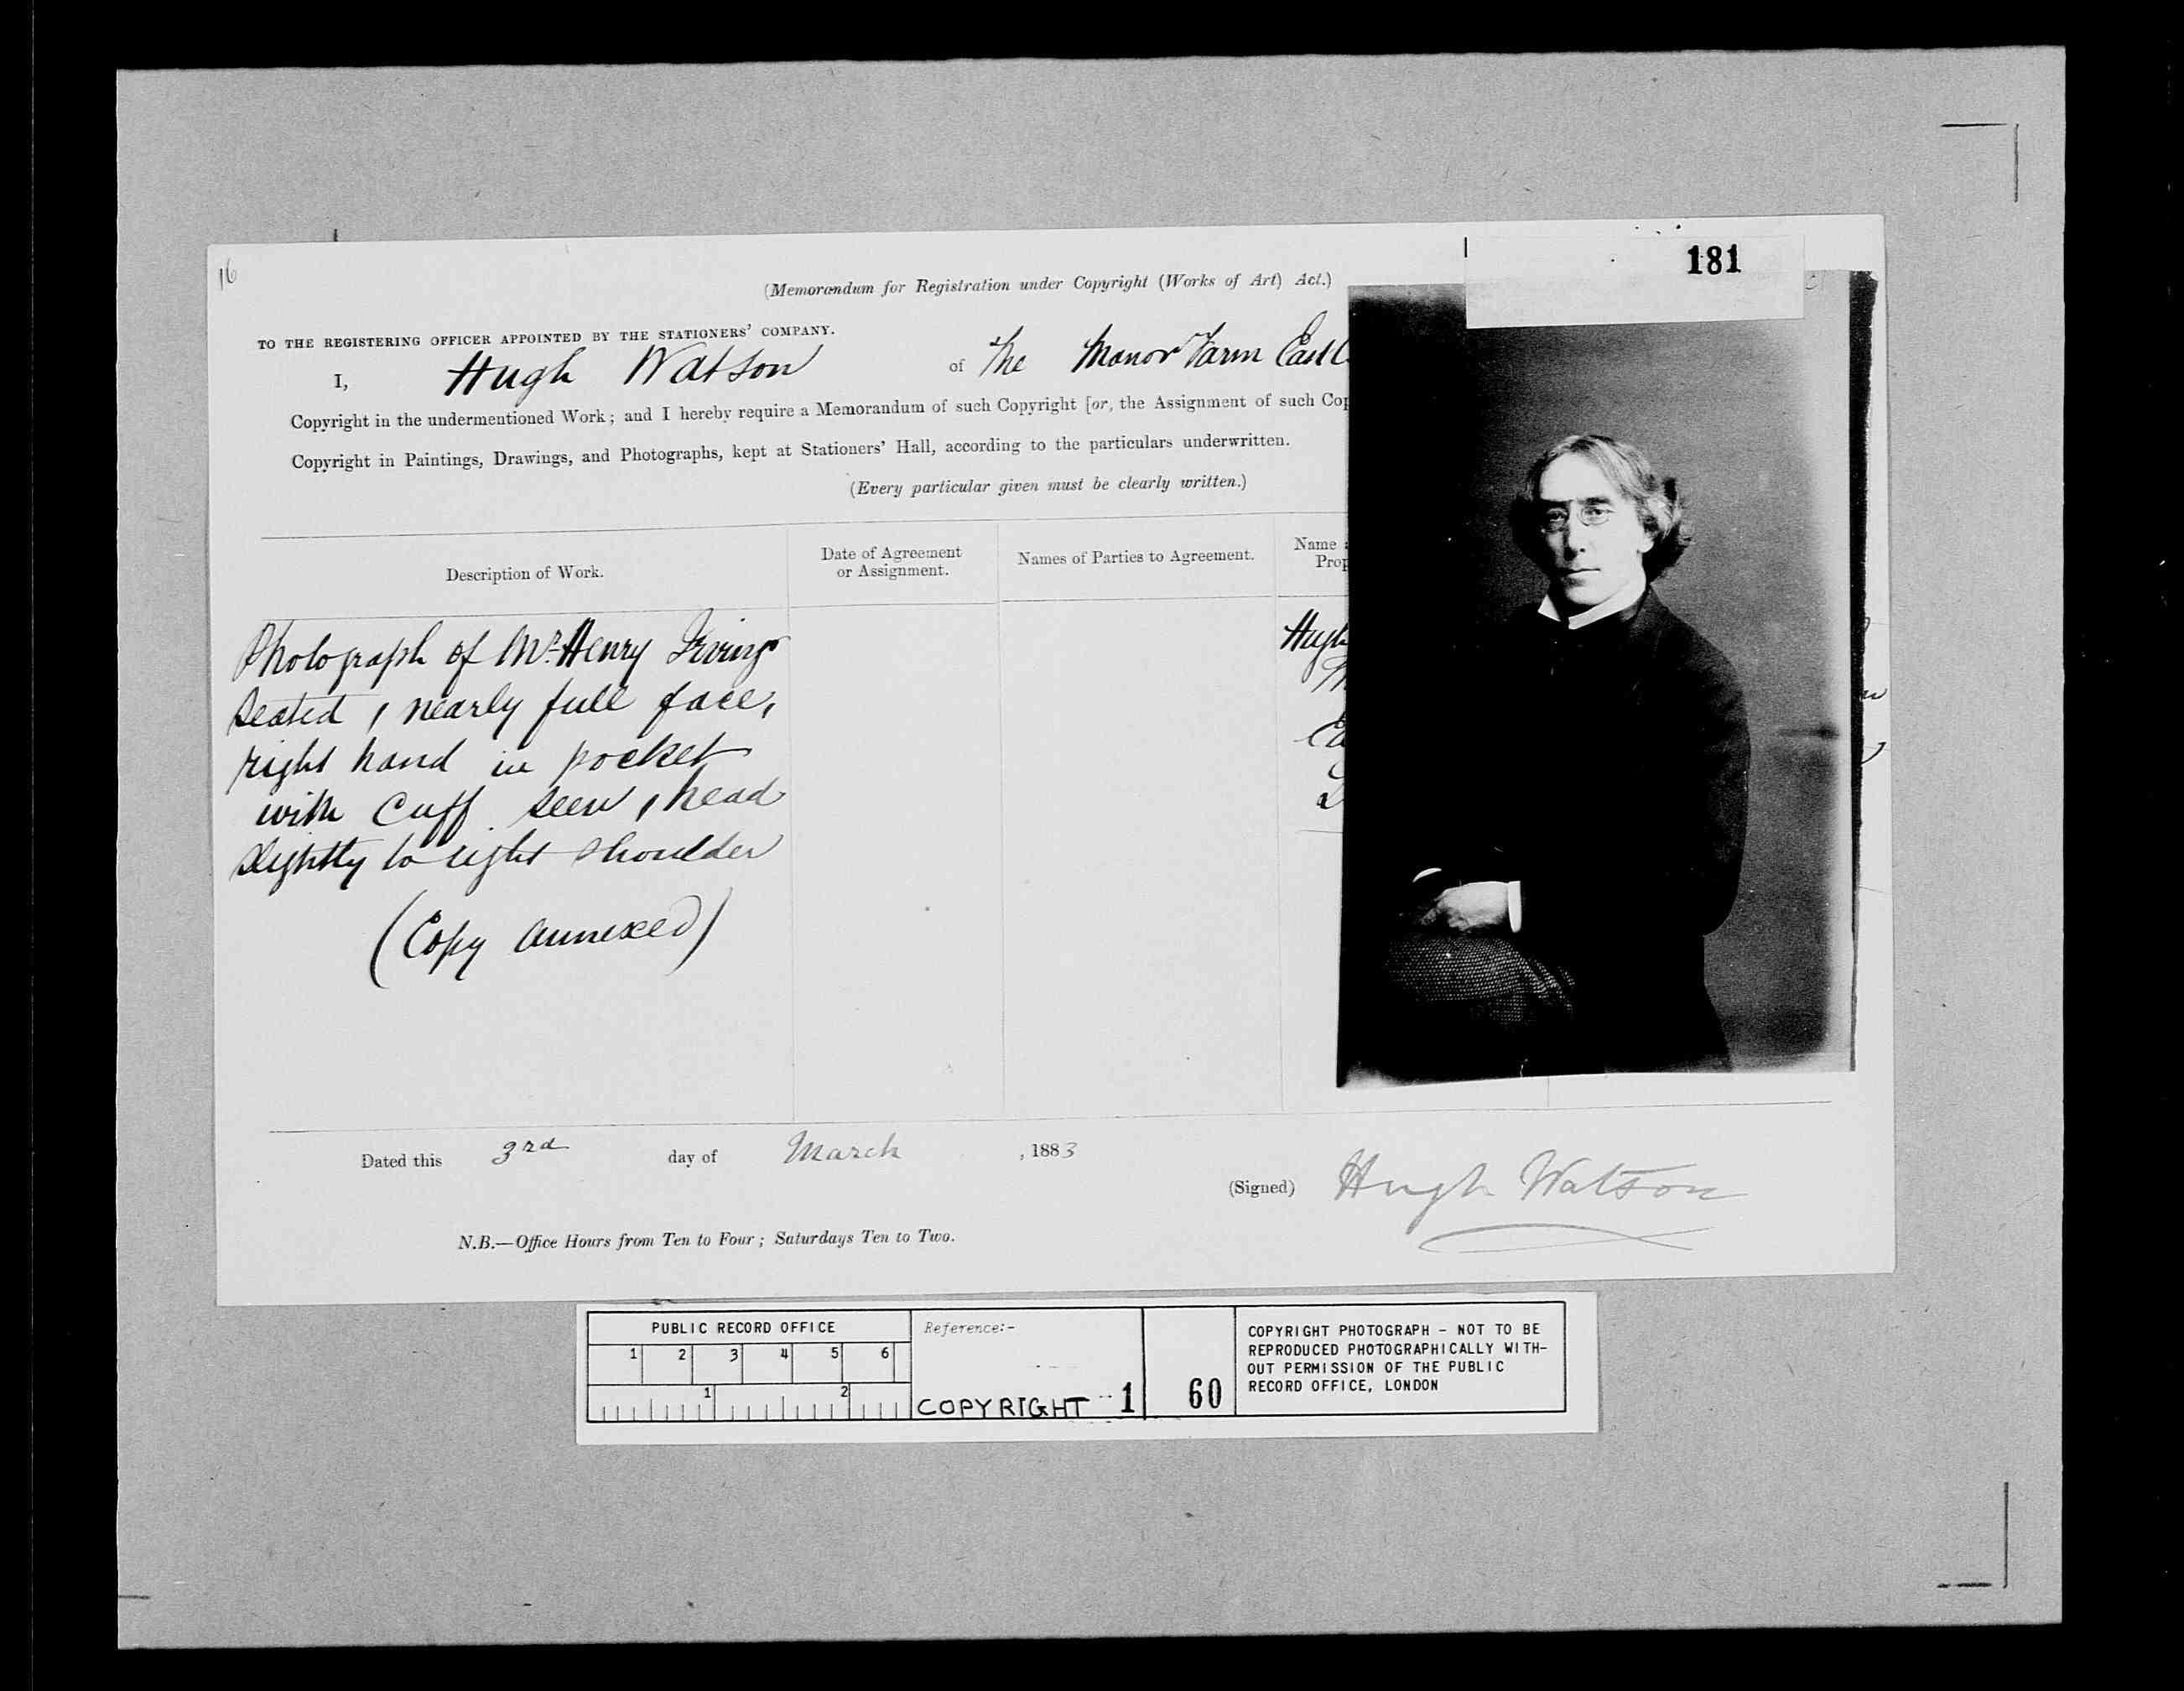 16
181
(Memorandum for Registration under Copyright (Works of Art) Act.)
TO THE REGISTERING OFFICER APPOINTED BY THE STATIONERS' COMPANY.
I, Hugh Watson of The Manor Farm East
Copyright in the undermentioned Work; and I hereby require a Memorandum of such Copyright [or, the Assignment of such Cop
Copyright in Paintings, Drawings, and Photographs, kept at Stationers' Hall, according to the particulars underwritten.
(Every particular given must be clearly written.)
Description of Work.
Date of Agreement
or Assignment.
Names of Parties to Agreement.
Name
Prop
Photograph of Mr. Henry Irving
seated, nearly full face,
right hand in pocket
with cuff seen, head
slightly to right shoulder
(Copy annexed)
Hugh
Dated this 3rd day of March, 1883
(Signed) Hugh Watson
N.B.—Office Hours from Ten to Four; Saturdays Ten to Two.
PUBLIC RECORD OFFICE
1 2 3 4 5 6
1 2
Reference:-
COPYRIGHT 1 60
COPYRIGHT PHOTOGRAPH - NOT TO BE
REPRODUCED PHOTOGRAPHICALLY WITH-
OUT PERMISSION OF THE PUBLIC
RECORD OFFICE, LONDON